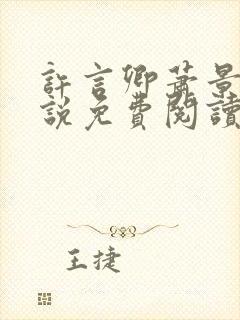 許言卿蕭景
說免費閱讀
王捷